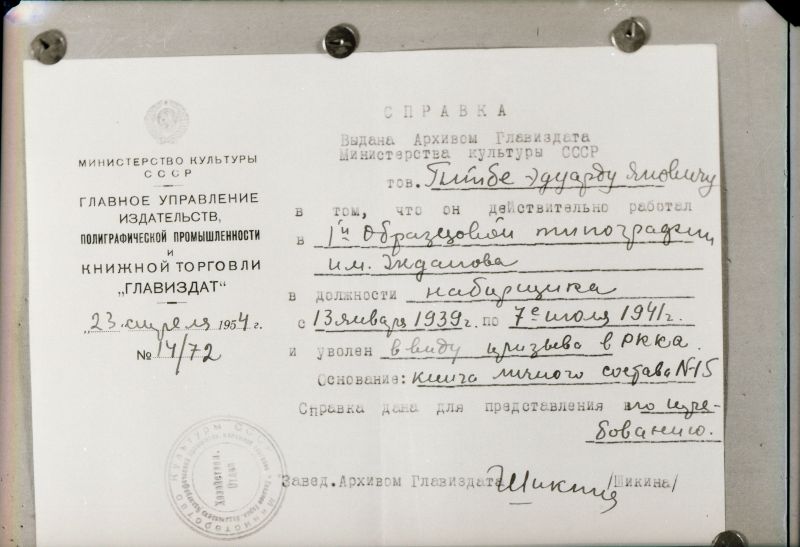 МИНИСТЕРСТВО КУЛЬТУРЫ
СССР
ГЛАВНОЕ УПРАВЛЕНИЕ
ИЗДАТЕЛЬСТВ,
ПОЛИГРАФИЧЕСКОЙ ПРОМЫШЛЕННОСТИ
И
КНИЖНОЙ ТОРГОВЛИ
„ГЛАВИЗДАТ"
„23 апреля 1954 г.
№ 14/72
СПРАВКА
Выдана Архивом Главиздата
Министерства культуры СССР
тов. Эдуарду Яновичу
в том, что он действительно работал
в 1й Образцовой типографии
им. Жданова
в должности наборщика
с 13 января 1939 г. по 7е июля 1941 г.
и уволен ввиду призыва в РККА.
Основание: книга личного состава N 15
Справка дана для представления по требованию.
Завед. Архивом Главиздата Шикина /Шикина/
Министерство Культуры СССР
Хозяйствен.
Отдел